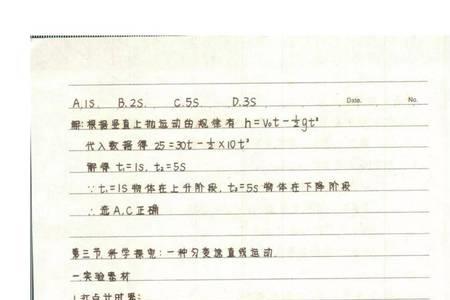 A.1S. B.2S. C.5S D.3S Date. No.
解:根据竖直上抛运动的规律有 h=V₀t-½gt²
代入数据得 25=30t-½×10t²
解得 t₁=1S, t₂=5S
∵t₁=1S物体在上升阶段, t₂=5S物体在下降阶段
∴选A,C正确
第三节 科学探究:一种匀变速直线运动
一.实验器材
1.打点计时器: